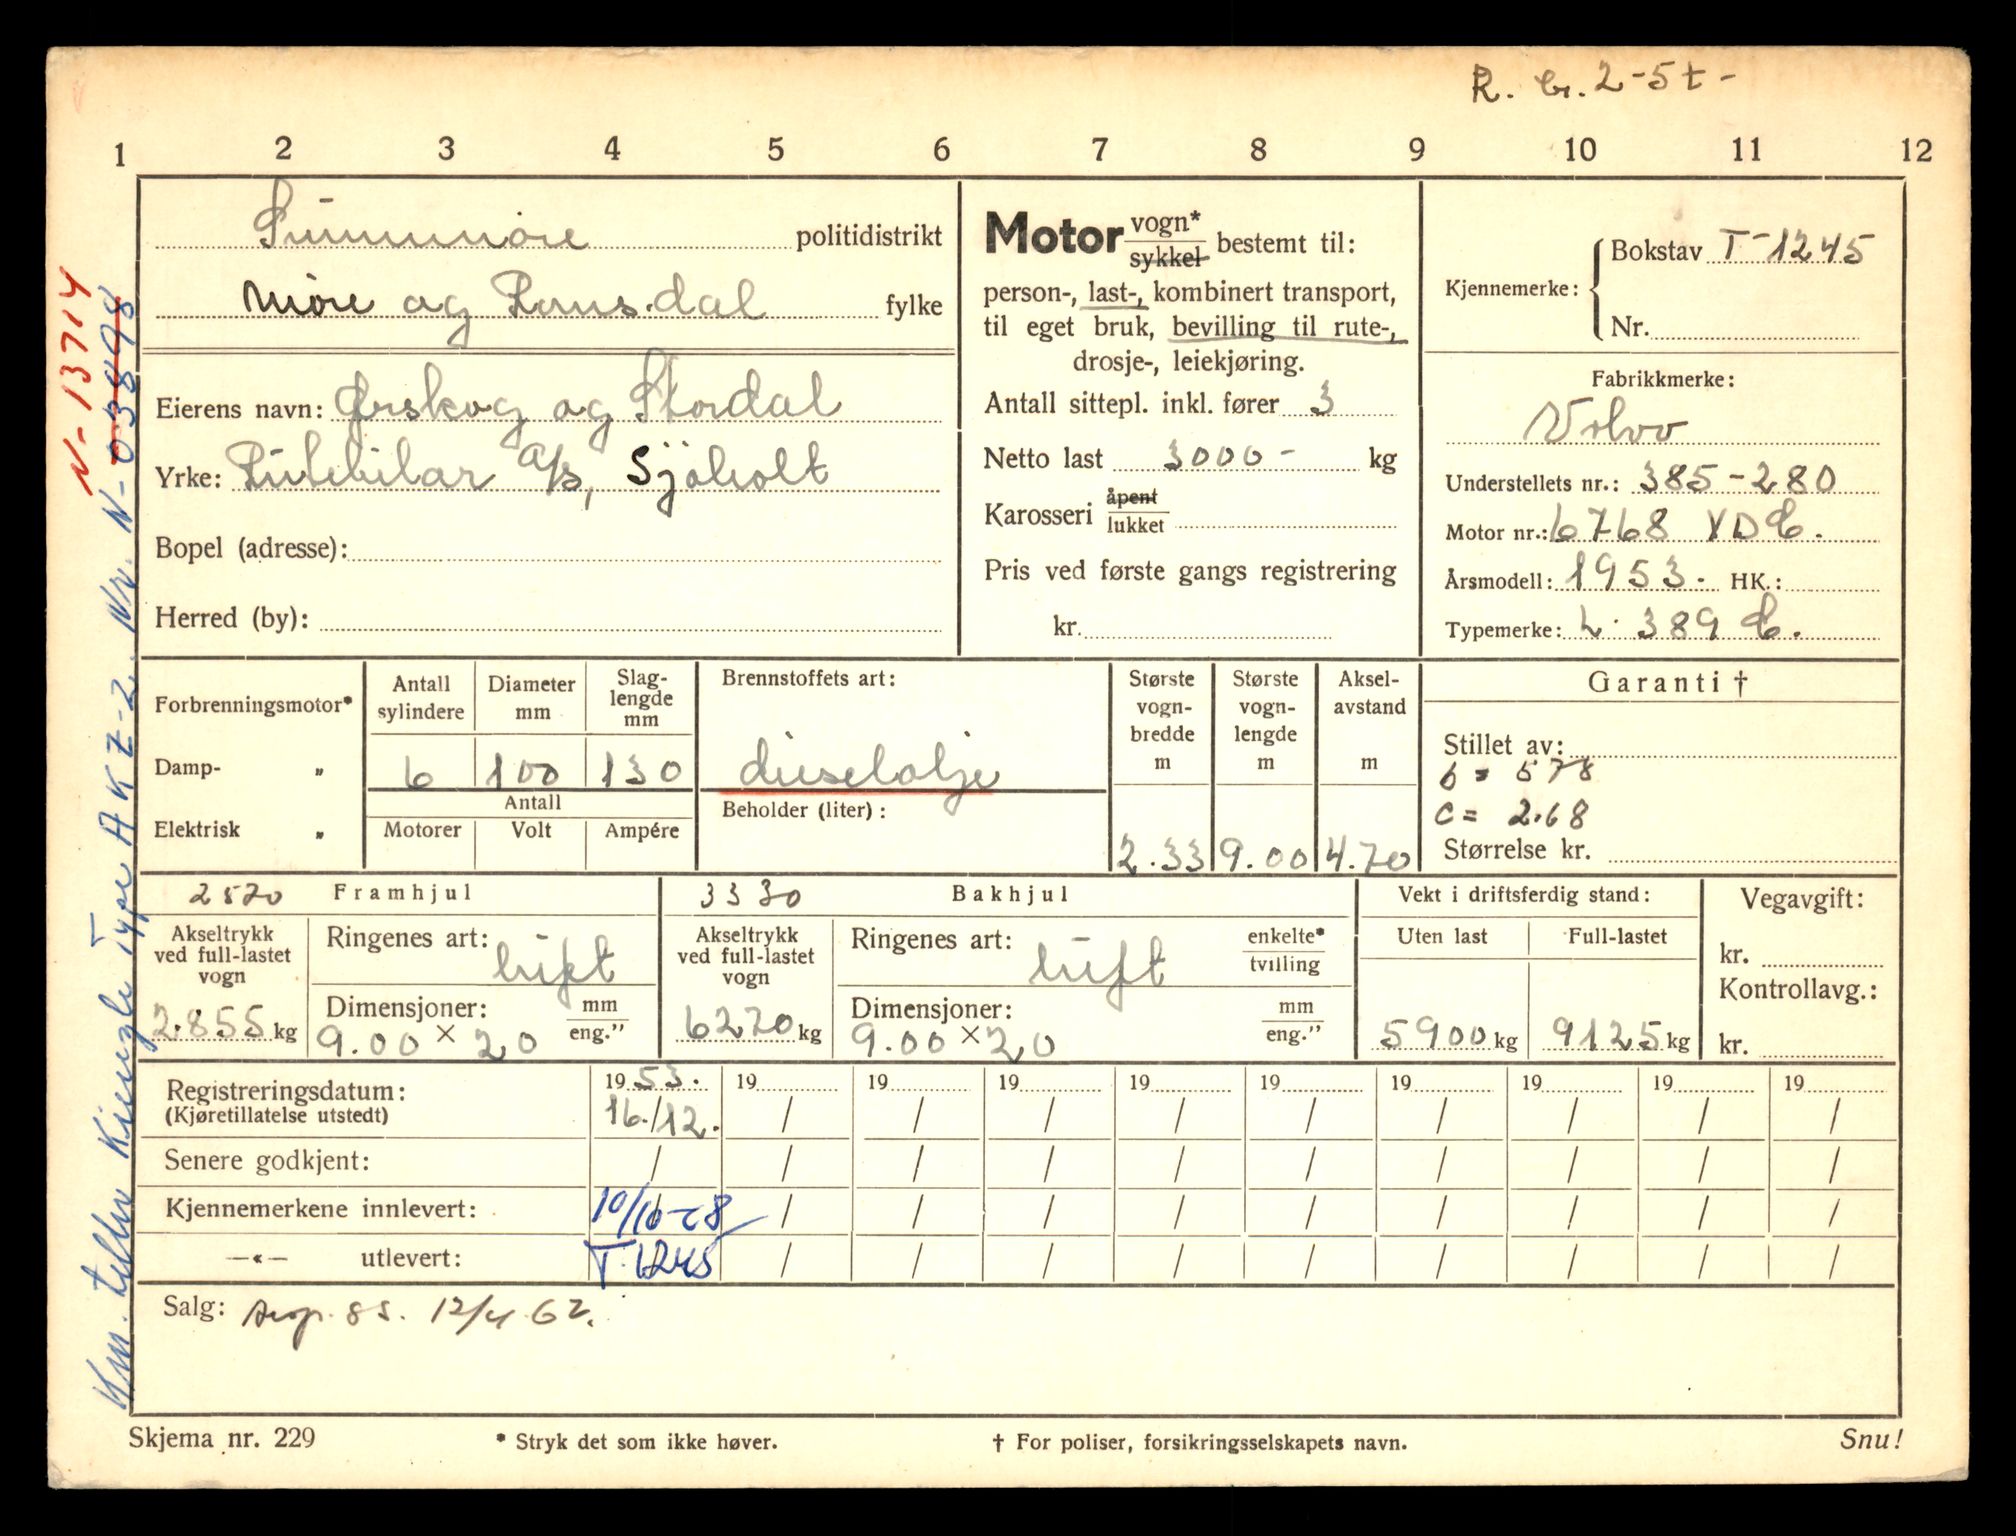 R. br. 2-5 t -
1 2 3 4 5 6 7 8 9 10 11 12
Sunnmøre politidistrikt
Møre og Romsdal fylke
Eierens navn: Ørskog og Stordal
Yrke: Rutebilar A/S, Sjøholt
Bopel (adresse):
Herred (by):
Motor vogn* / sykkel bestemt til:
person-, last-, kombinert transport,
til eget bruk, bevilling til rute-,
drosje-, leiekjøring.
Antall sittepl. inkl. fører 3
Netto last 3000 - kg
Karosseri åpent / lukket
Pris ved første gangs registrering
kr.
Kjennemerke: Bokstav T-1245
Nr.
Fabrikkmerke:
Volvo
Understellets nr.: 385-280
Motor nr.: 6768 VDC.
Årsmodell: 1953. HK.:
Typemerke: L. 389 C.
Forbrenningsmotor*
Damp- "
Elektrisk "
Antall sylindere
6
Diameter mm
100
Slag-lengde mm
130
Antall
Motorer Volt Ampére
Brennstoffets art:
dieselolje
Beholder (liter):
Største vogn-bredde m
2.33
Største vogn-lengde m
9.00
Aksel-avstand m
4.70
Garanti †
Stillet av:
b = 578
c = 2.68
Størrelse kr.
2570 Framhjul
Akseltrykk ved full-lastet vogn
2.855 kg
Ringenes art: luft
Dimensjoner: mm / eng."
9.00 × 20
3330 Bakhjul
Akseltrykk ved full-lastet vogn
6270 kg
Ringenes art: luft enkelte* / tvilling
Dimensjoner: mm / eng."
9.00 × 20
Vekt i driftsferdig stand:
Uten last Full-lastet
5900 kg 9125 kg
Vegavgift:
kr.
Kontrollavg.:
kr.
Registreringsdatum: 1953. 19 19 19 19 19 19 19 19 19
(Kjøretillatelse utstedt) 16./12. / / / / / / / / /
Senere godkjent: / / / / / / / / / /
Kjennemerkene innlevert: 10/10-58 / / / / / / / / /
—«— utlevert: T.1245 / / / / / / / / /
Salg: 85. 12/4.62.
Skjema nr. 229 * Stryk det som ikke høver. † For poliser, forsikringsselskapets navn. Snu!
Km. teller Kienzle Type AKZ-2. Nr. N-038498
N-13714